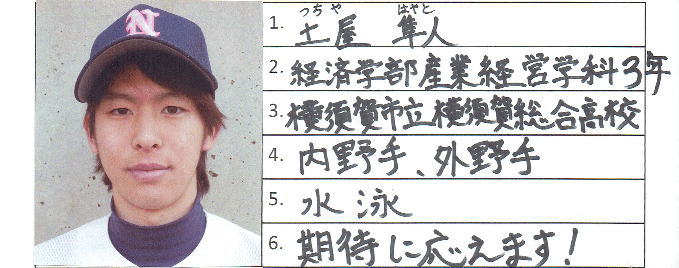 N
つちや はやと
1. 土屋 隼人
2. 経済学部産業経営学科3年
3. 横須賀市立横須賀総合高校
4. 内野手、外野手
5. 水泳
6. 期待に応えます!